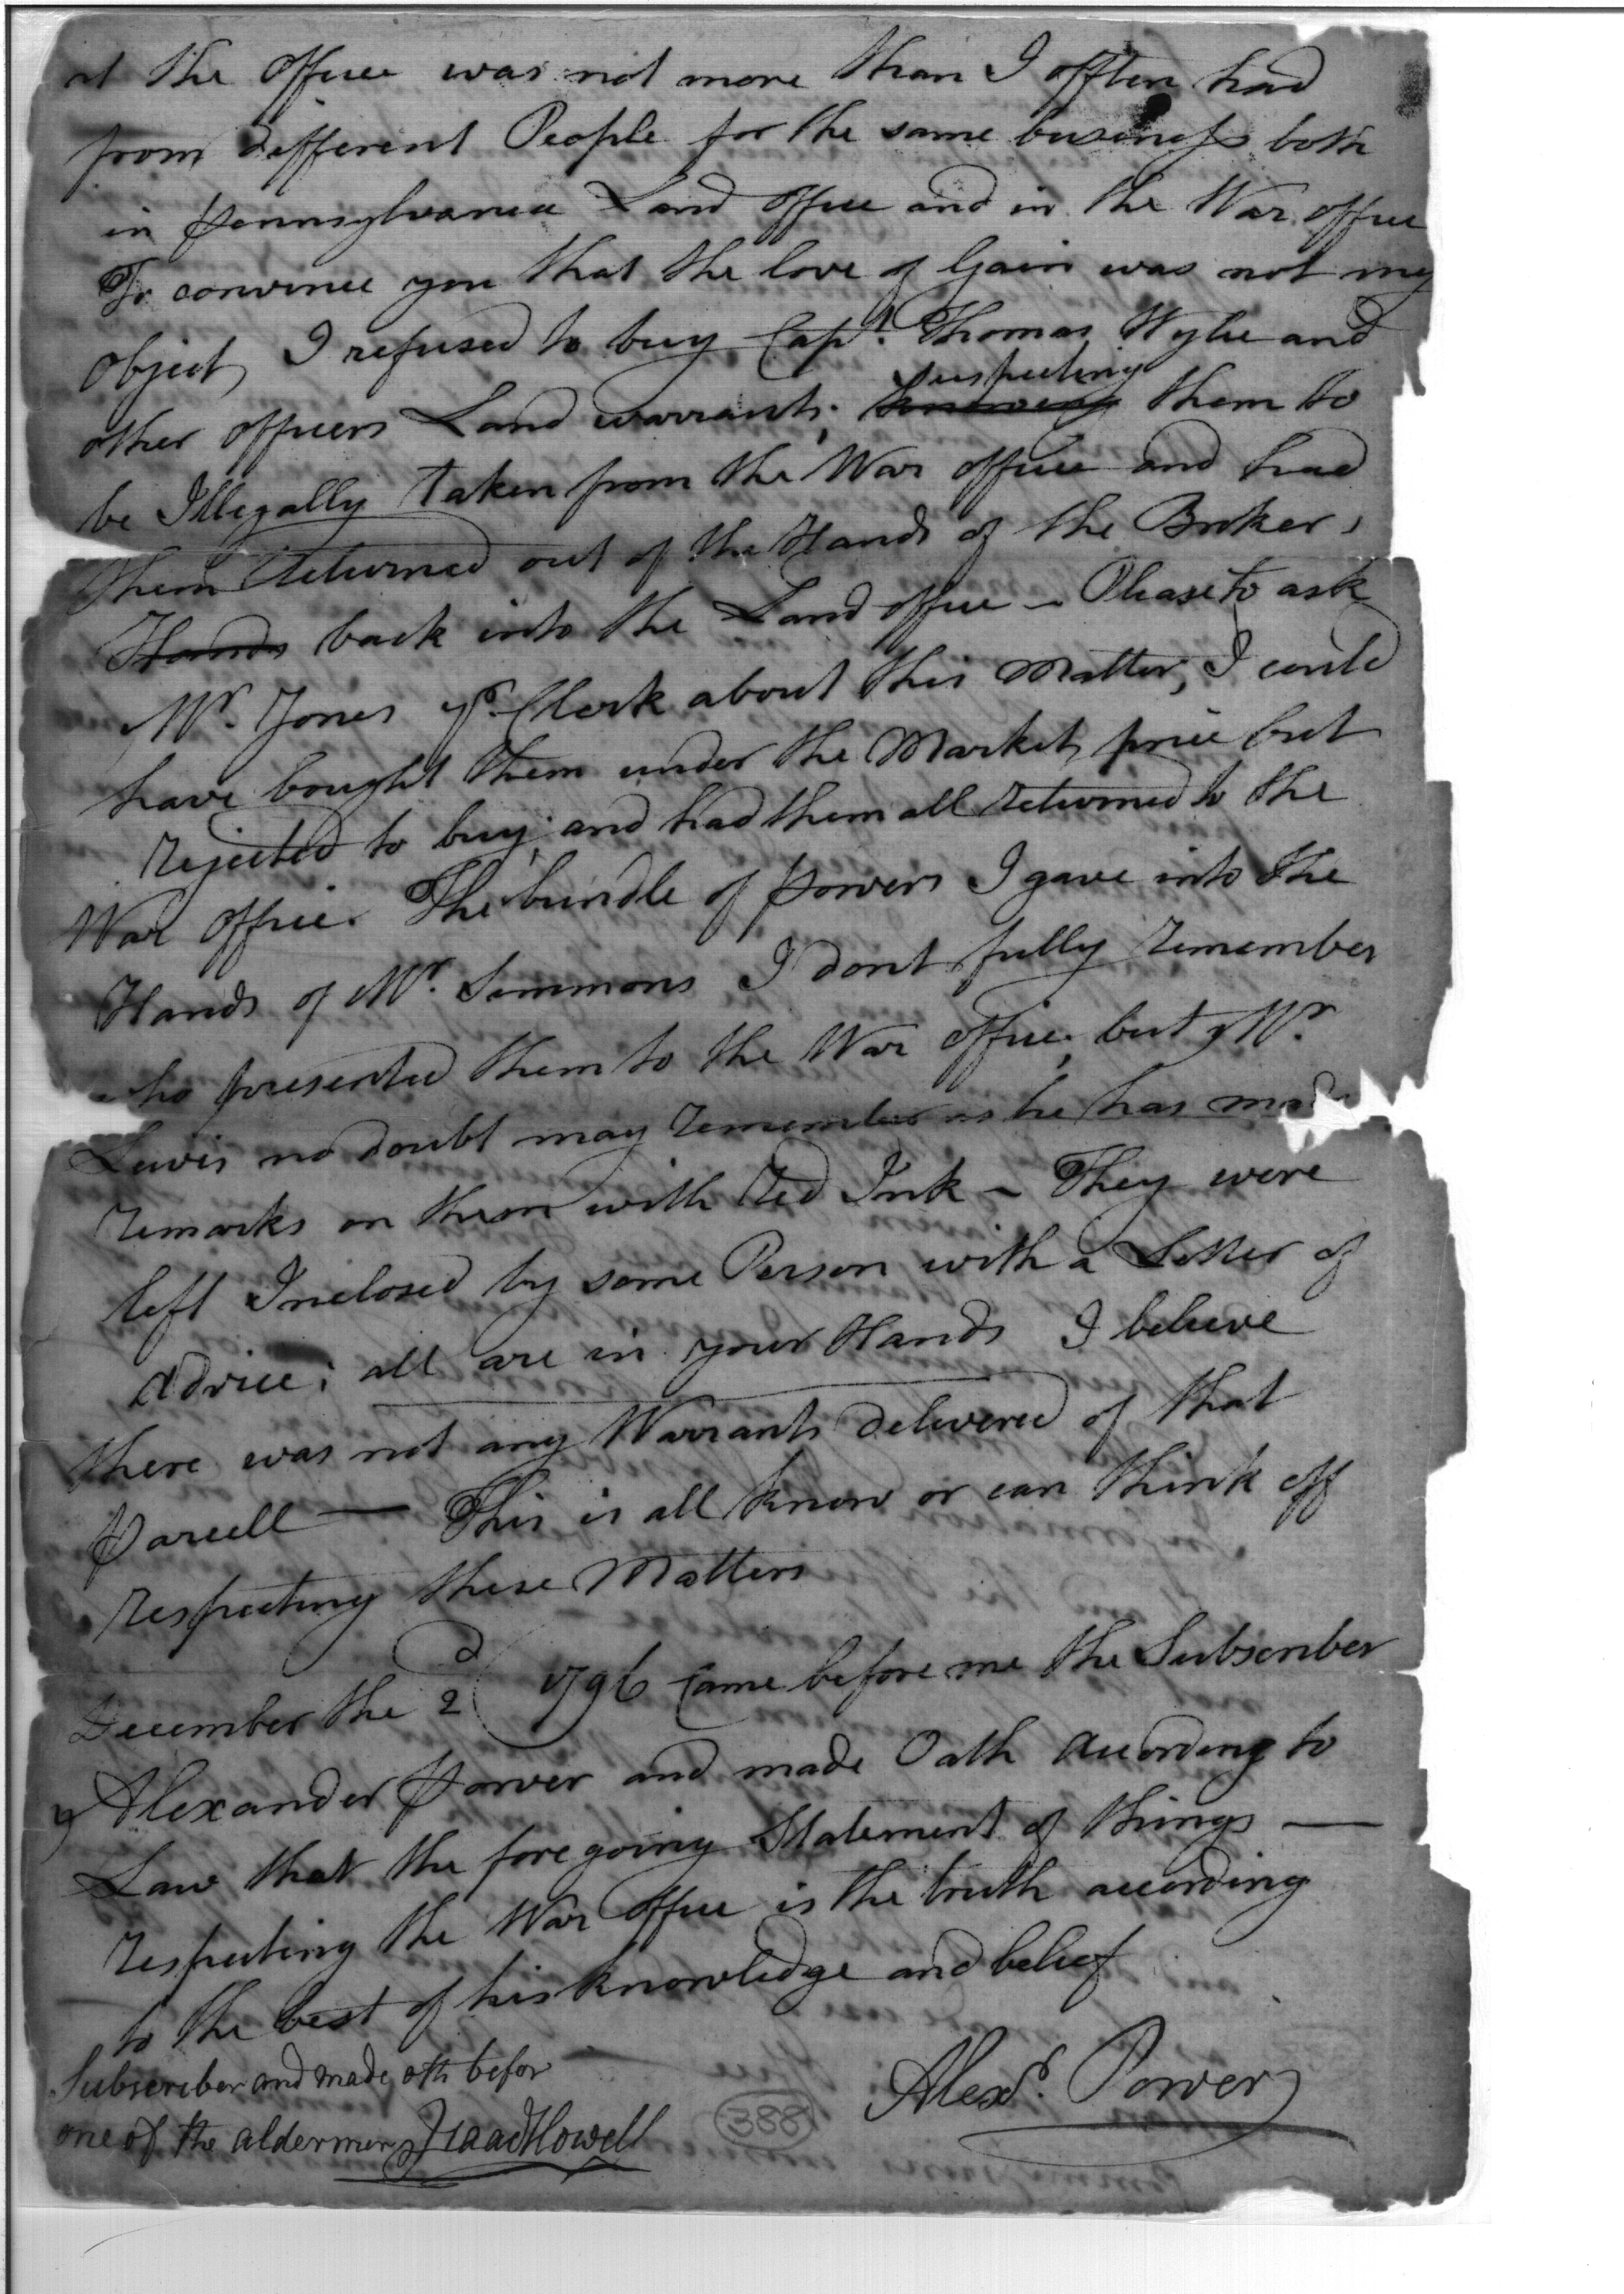 at the office was not more than I offten had
from different People for the same business both
in pennsylvania Land office and in the War office
To convince you that the love of Gain was not my
object, I refused to buy Capt. Thomas Wylie and
suspecting
other officers Land warrants, them to
be Illegally taken from the War office and had
them returned out of the Hands of the Brokers
Hands back into the Land office – Please to ask
Mr. Jones yr. Clerk about this Matter, I could
have bought them under the Market price but
rejected to buy, and had them all returned to the
War office. The bundle of powers I gave into the
Hands of Mr. Simmons I dont fully remember
who presented them to the War office, but Mr.
Lewis no doubt may remember as he has made
remarks on them with Red Ink – They were
left Inclosed by some Person with a Letter of
advice; all are in your Hands I believe
there was not any Warrants delivered of that
parcell — This is all know or can think off
respecting these Matters
December the 2d 1796 Came before me the Subscriber
Alexander power and made Oath according to
Law that the foregoing Statement of things —
respecting the War office is the truth according
to the best of his knowledge and belief
Subscriber and made oth befor
one of the aldermen Isaac Howell
388
Alexr. Power